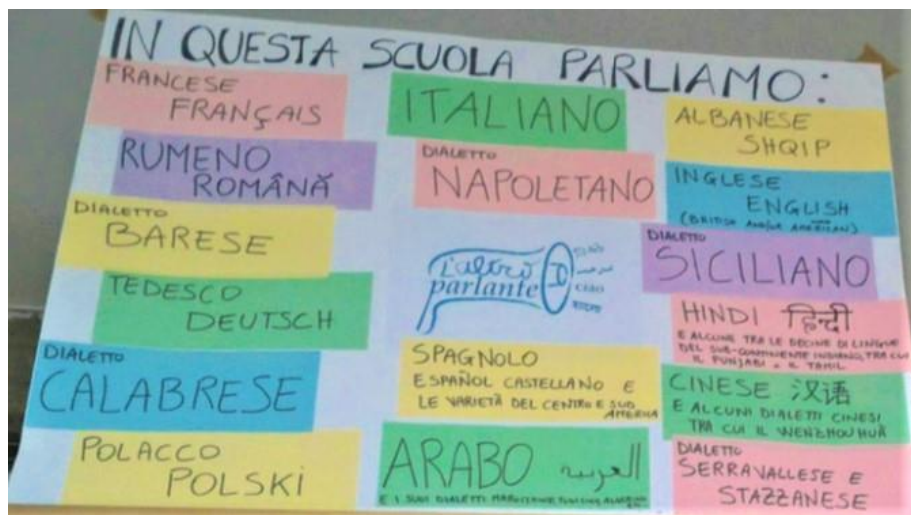 IN QUESTA SCUOLA PARLIAMO:
FRANCESE
FRANÇAIS
RUMENO
ROMÂNĂ
DIALETTO
BARESE
TEDESCO
DEUTSCH
DIALETTO
CALABRESE
POLACCO
POLSKI
ITALIANO
DIALETTO
NAPOLETANO
L'altro
parlante
CIAO
SPAGNOLO
ESPAÑOL CASTELLANO E
LE VARIETÀ DEL CENTRO E SUD
AMERICA
ARABO العربية
E I SUOI DIALETTI MAROCCHINO TUNISINO
ALBANESE
SHQIP
INGLESE
ENGLISH
(BRITISH AND/OR AMERICAN)
DIALETTO
SICILIANO
HINDI हिन्दी
E ALCUNE TRA LE DECINE DI LINGUE
DEL SUB-CONTINENTE INDIANO, TRA CUI
IL PUNJABI E IL TAMIL
CINESE 汉语
E ALCUNI DIALETTI CINESI
TRA CUI IL WENZHOUHUÀ
DIALETTO
SERRAVALLESE E
STAZZANESE